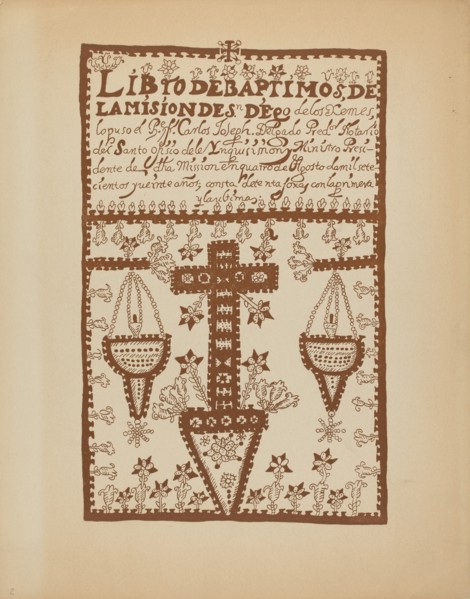 LIBTO DE BAPTIMOS, DE
LA MISION DE Sn. DIEgo de los Xemes,
lo puso el Pe. fr. Carlos Joseph. Delgado Pred.r Notario
del Santo Oficio de la Ynquisision, y Ministro Presi-
dente de dha Mission en quatro de Agosto de mil sete-
cientos y veinte años; consta de te nta foxas con la primera
y la ultima